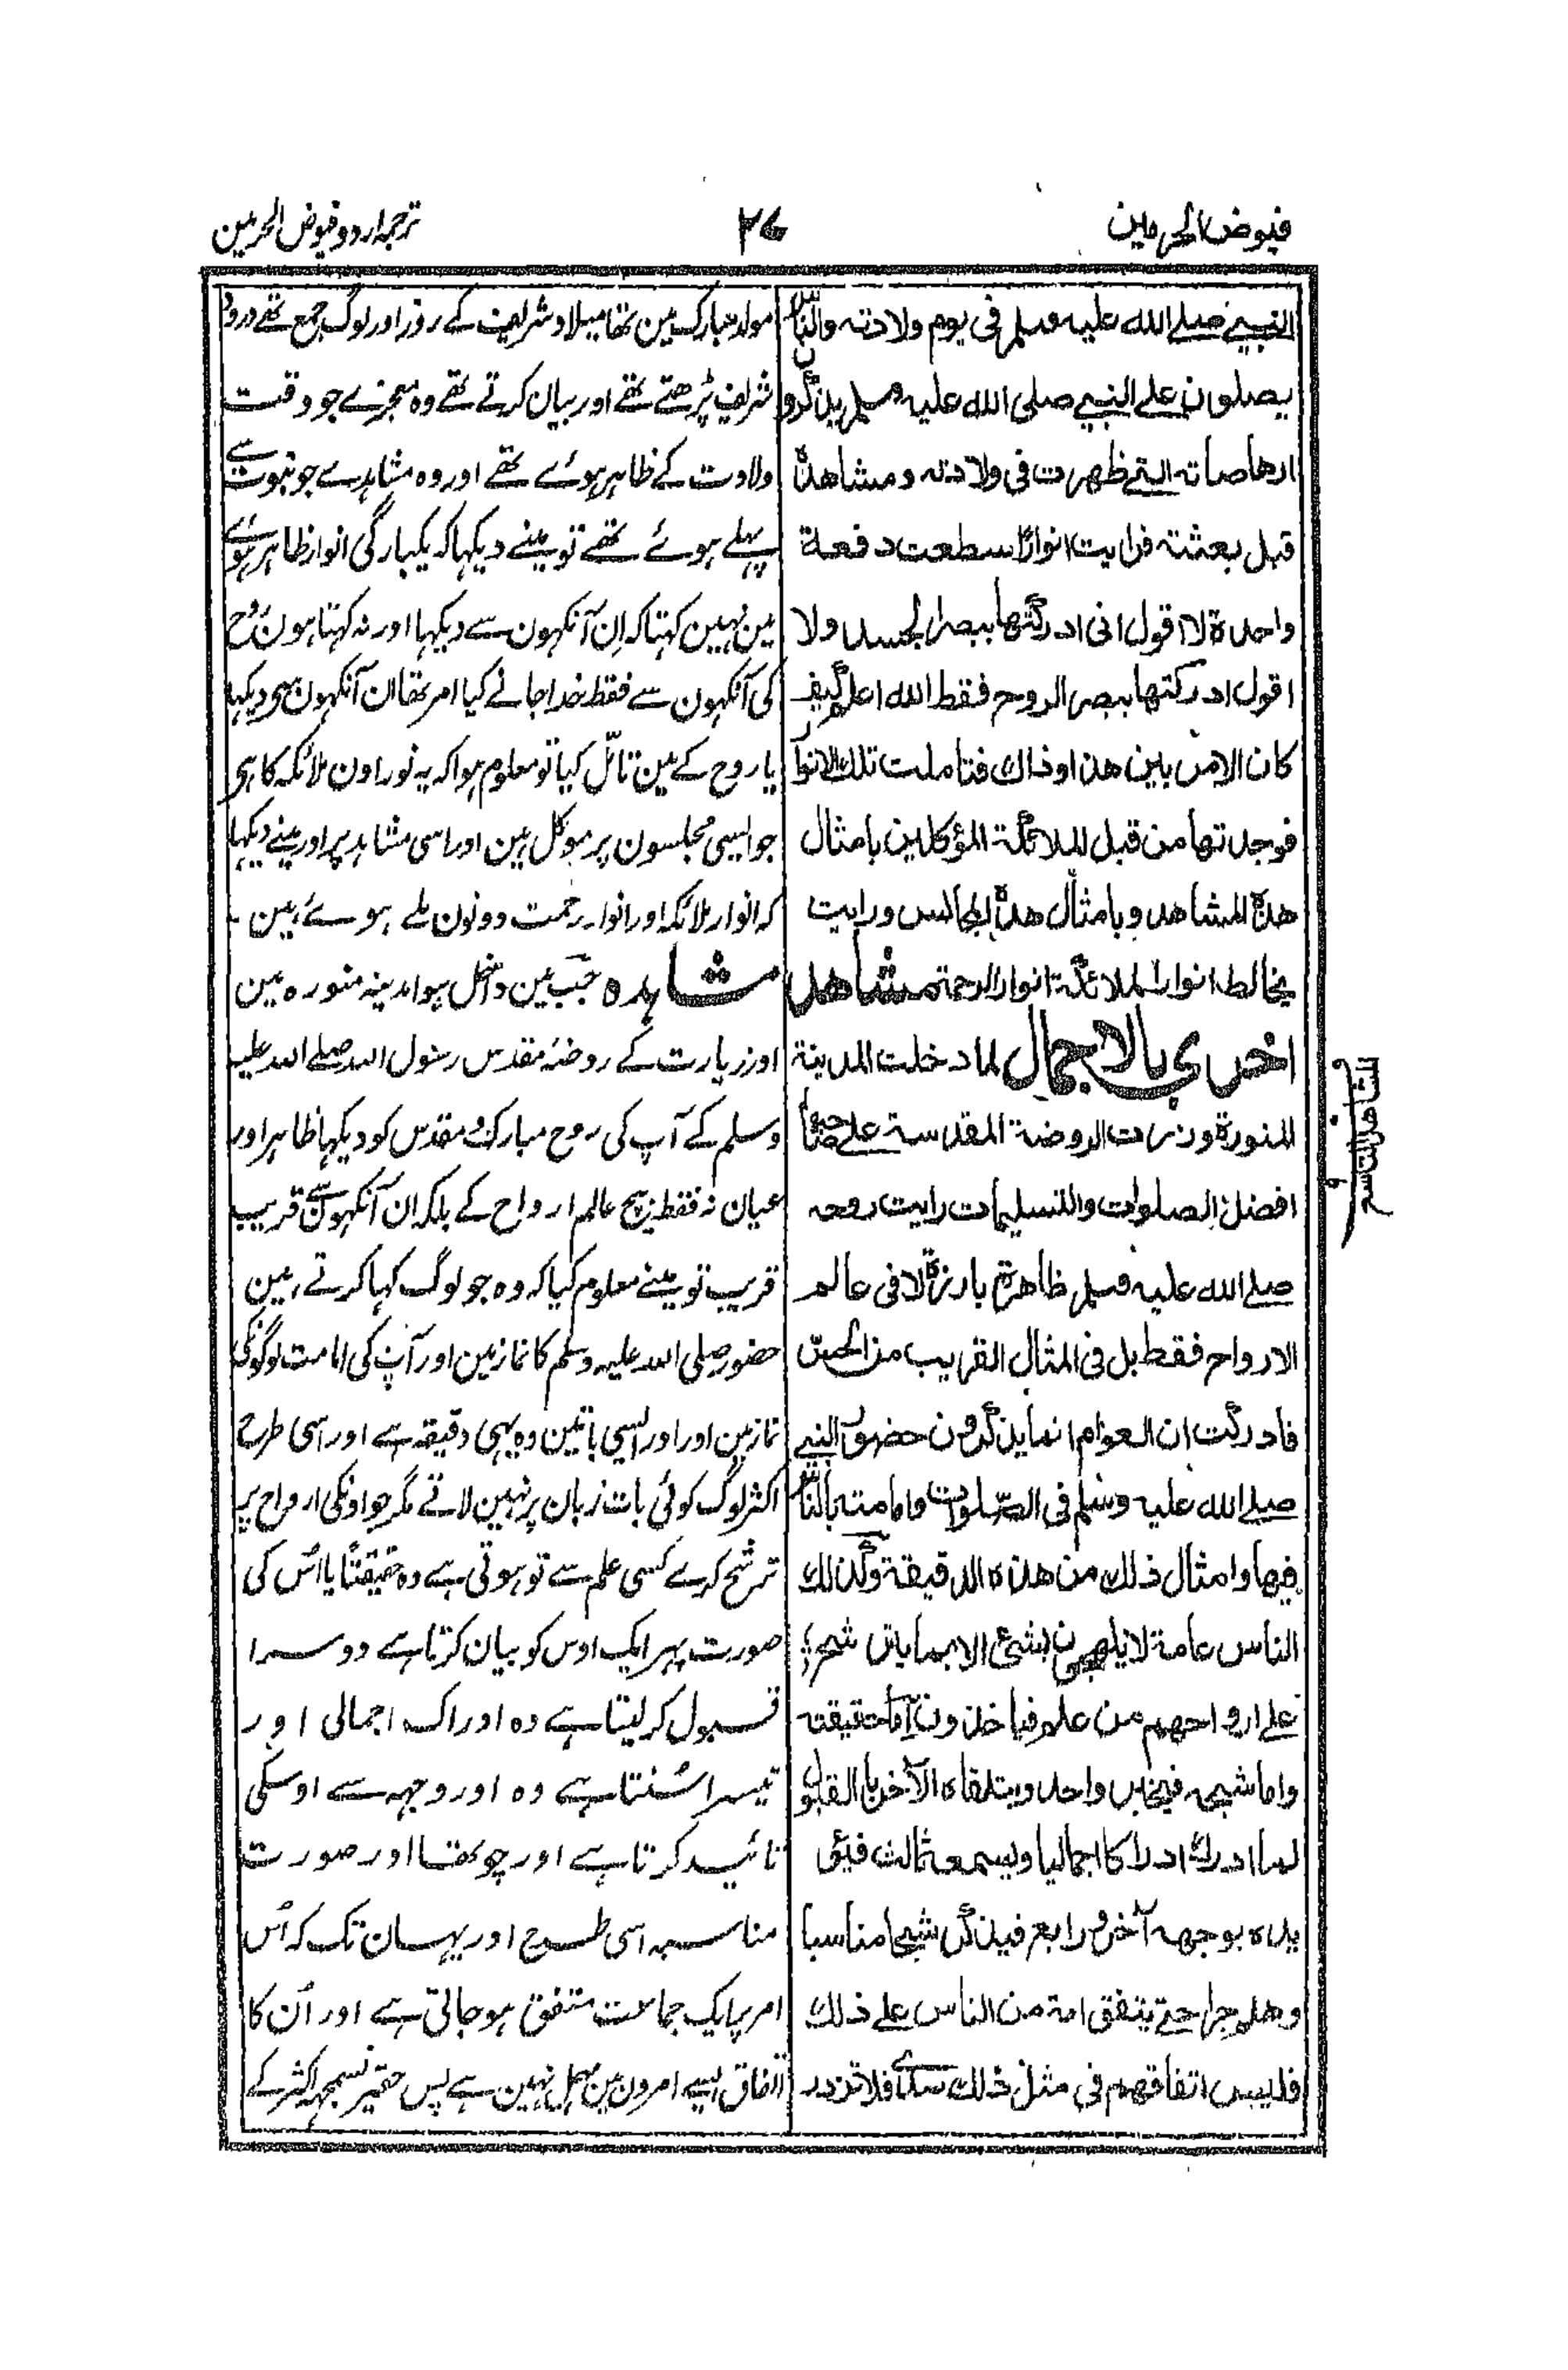 فیوض الحرمین
۲۷
ترجمہ اردو فیوض الحرمین
النبی صلے اللہ علیہ وسلم فی یوم ولادتہ والناس
یصلون علے النبی صلی اللہ علیہ وسلم یذکرون
ارھاصاتہ التی ظھرت فی ولادتہ ومشاھدہ
قبل بعثتہ فرایت انوارًا سطعت دفعۃ
واحدۃ لا اقول انی ادرکتھا ببصر الجسد ولا
اقول ادرکتھا ببصر الروح فقط اللہ اعلم کیف
کان الامر بین ھذا وذاک فتاملت تلک الانوار
فوجدتھا من قبل الملائکۃ المؤکلین بامثال
ھذہ المشاھد وبامثال ھذہ المجالس ورایت
یخالط انوار الملائکۃ انوار الرحمۃ مشاھد
اخری بالاجمال لما دخلت المدینۃ
المنورۃ وزرت الروضۃ المقدسۃ علے صاحبھا
افضل الصلوات والتسلیمات رایت روحہ
صلے اللہ علیہ وسلم ظاھرۃ بارزۃ لا فی عالم
الارواح فقط بل فی المثال القریب من الحس
فادرکت ان العوام انما یذکرون حضور النبی
صلے اللہ علیہ وسلم فی الصلوات وامامتہ بالناس
فیھا وامثال ذلک من ھذہ الدقیقۃ وکذلک
الناس عامۃ لا یلھجون بشئ الا بما یترشح
علے ارواحھم من علم فیاخذون اما حقیقتہ
واما شبحہ فیخبر واحد ویتلقاہ الآخر بالقبول
لما ادرک ادراکا اجمالیا ویسمعہ ثالث فیؤ
یدہ بوجھہ آخر ورابع فیذکر شبحا مناسبا
وھلم جرا حتے یتفق امۃ من الناس علے ذلک
فلیس اتفاقھم فی مثل ذلک سدی فلا تزدر
مولد مبارک مین تھا میلاد شریف کے روز اور لوگ جمع تھے درود
شریف پڑھتے تھے اور بیان کرتے تھے وہ معجزے جو وقت
ولادت کے ظاہر ہوئے تھے اور وہ مشاہدے جو نبوت سے
پہلے ہوئے تھے تو مینے دیکہا کہ یکبارگی انوار ظاہر ہوئے
مین نہین کہتا کہ اِن آنکہون سے دیکہا اور نہ کہتا ہون روح
کی آنکہون سے فقط خدا جانے کیا امر تھا ان آنکہون سے دیکہا
یا روح کے مین تامّل کیا تو معلوم ہوا کہ یہ نور اون ملائکہ کا ہی
جو ایسی مجلسون پر موکل ہین اور اسی مشاہد پر اور مینے دیکہا
کہ انوار ملائکہ اور انوار رحمت دونون ملے ہوئے ہین -
مشاہدہ جب مین داخل ہوا مدینہ منورہ مین
اور زیارت کے روضۂ مقدس رسول اللہ صلے اللہ علیہ
وسلم کے آپ کی روح مبارک و مقدس کو دیکہا ظاہر اور
عیان نہ فقط بیچ عالم ارواح کے بلکہ ان آنکہون سے قریب
قریب تو مینے معلوم کیا کہ وہ جو لوگ کہا کرتے ہین
حضور صلی اللہ علیہ وسلم کا نماز مین اور آپ کی امامت لوگونکی
نماز مین اور اور ایسی باتین وہ یہی دقیقہ ہے اور اسی طرح
اکثر لوگ کوئی بات زبان پر نہین لاتے مگر جو اونکی ارواح پر
ترشح کرے کسی علم سے تو ہوتی ہے وہ حقیقتًا یا اُس کی
صورت پہر ایک اوس کو بیان کرتا ہے دوسرا
قبول کر لیتا ہے وہ ادراک اجمالی اور
تیسرا سُنتا ہے وہ اور وجہہ سے اوسکی
تائید کرتا ہے اور چوتھا اور صورت
مناسبہ اسی طرح اور یہان تک کہ اُس
امر پر ایک جماعت متفق ہو جاتی ہے اور اُن کا
اتفاق ایسے امرون مین مہمل نہین ہے پس حقیر نسمجہہ اکثر کے